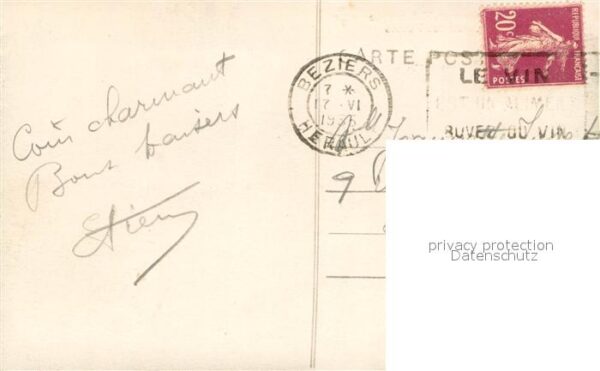 Coin charmant
Bons baisers
CARTE POST
BEZIERS
7 *
17 - VI
HERAUL
20c
REPUBLIQUE FRANÇAISE
POSTES
LE VIN
EST UN ALIMENT
BUVEZ DU VIN
9
privacy protection
Datenschutz